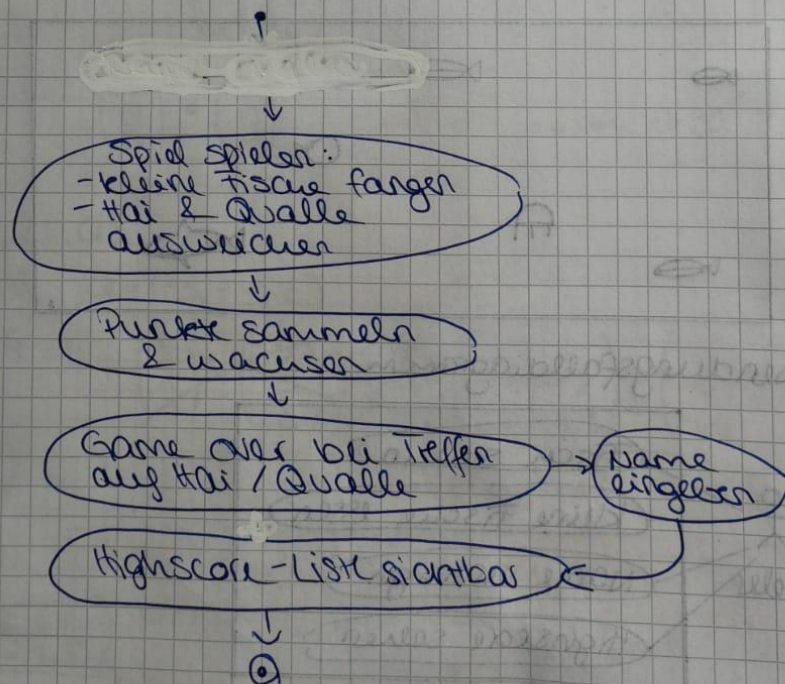 Spiel spielen:
- kleine Fische fangen
- Hai & Qualle
ausweichen
Punkte sammeln
& wachsen
Game over bei Treffen
auf Hai / Qualle
Name
eingeben
Highscore-Liste sichtbar